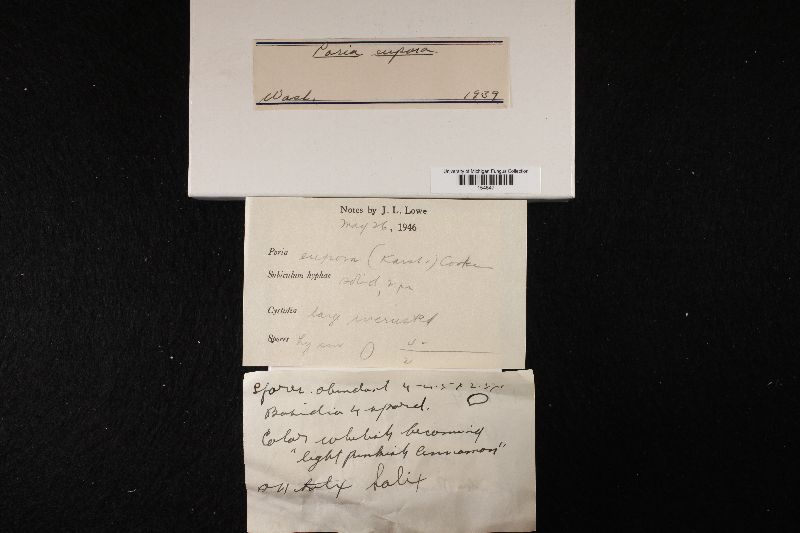 Poria eupora.
Wash. 1939
University of Michigan Fungus Collection
Notes by J. L. Lowe
May 26, 1946
Poria eupora (Karst.) Cooke
Subiculum hyphae solid, 2 µ
Cystidia large incrusted
Spores
2
Spores abundant 4-4.5 x 2.5µ
Basidia 4 spored.
Color whitish becoming
"light pinkish cinnamon"
on Salix